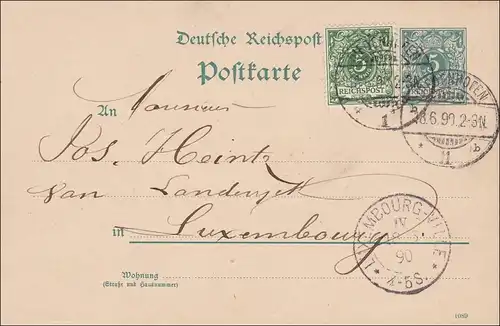 Deutsche Reichspost
Postkarte
5
REICHSPOST
8.6.90.2-3N.
1 b
An Monsieur
Jos. Heintz
van Landenzett
in Luxembourg
LUXEMBOURG-VILLE
IV
90
4-5S.
Wohnung
(Straße und Hausnummer)
1089